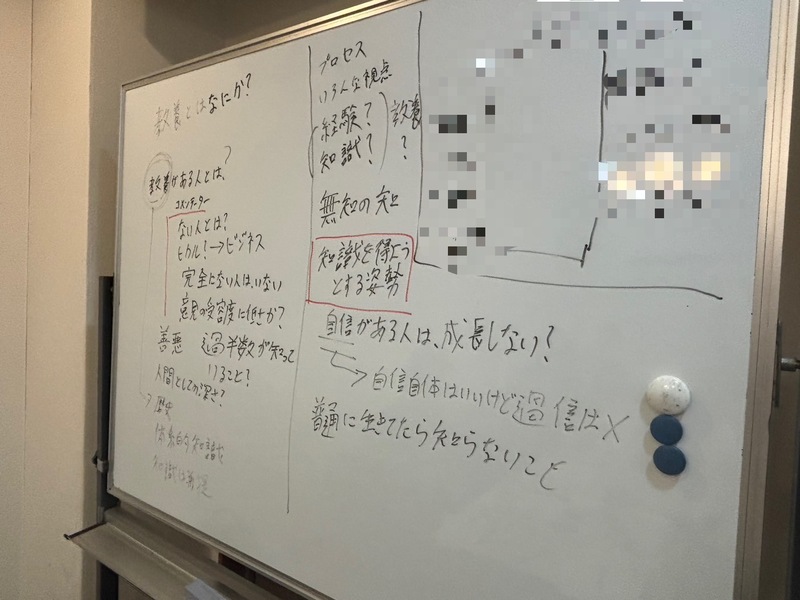 教養とはなにか?
教養がある人とは、?
コメンテーター
ない人とは?
ヒカル!→ビジネス
完全にない人はいない
意見の受容度に低さか?
善悪 過半数が知って
いること?
人間としての深さ?
→歴史
体系的知識
知識は前提
プロセス
いろんな視点
(経験?
知識?) 教養
?
無知の知
知識を得よう
とする姿勢
自信がある人は、成長しない?
→自信自体はいいけど過信は×
普通に生きてたら知らないこと